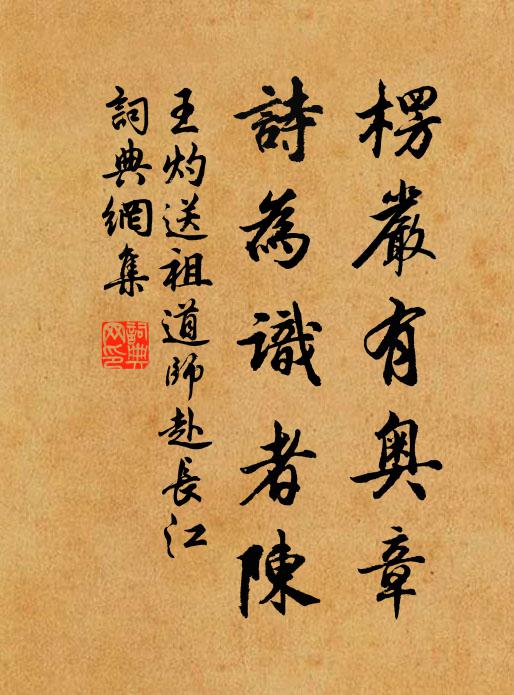 楞嚴有奧章
詩為識者陳
王灼送祖道師赴長江
詞典網集
詞典
网印